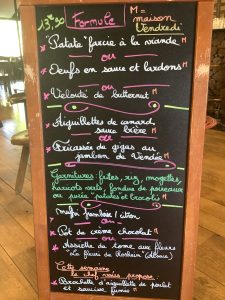 13€90 Formule M = maison
Vendredi
Patate farcie à la viande M
ou
Oeufs en sauce et lardons M
ou
Velouté de butternut M
Aiguillettes de canard,
sauce bière M
ou
Fricassée de gigas au
jambon de Vendée M
Garnitures: frites, riz, mogettes,
haricots verts, fondue de poireaux
ou purée "patates et brocolis" M
framboise / citron
ou
Pot de crème chocolat M
ou
Assiette de tome aux fleurs
Cette semaine,
le chef vous propose
Brochette d'aiguillette de poulet
et saucisse fumée M